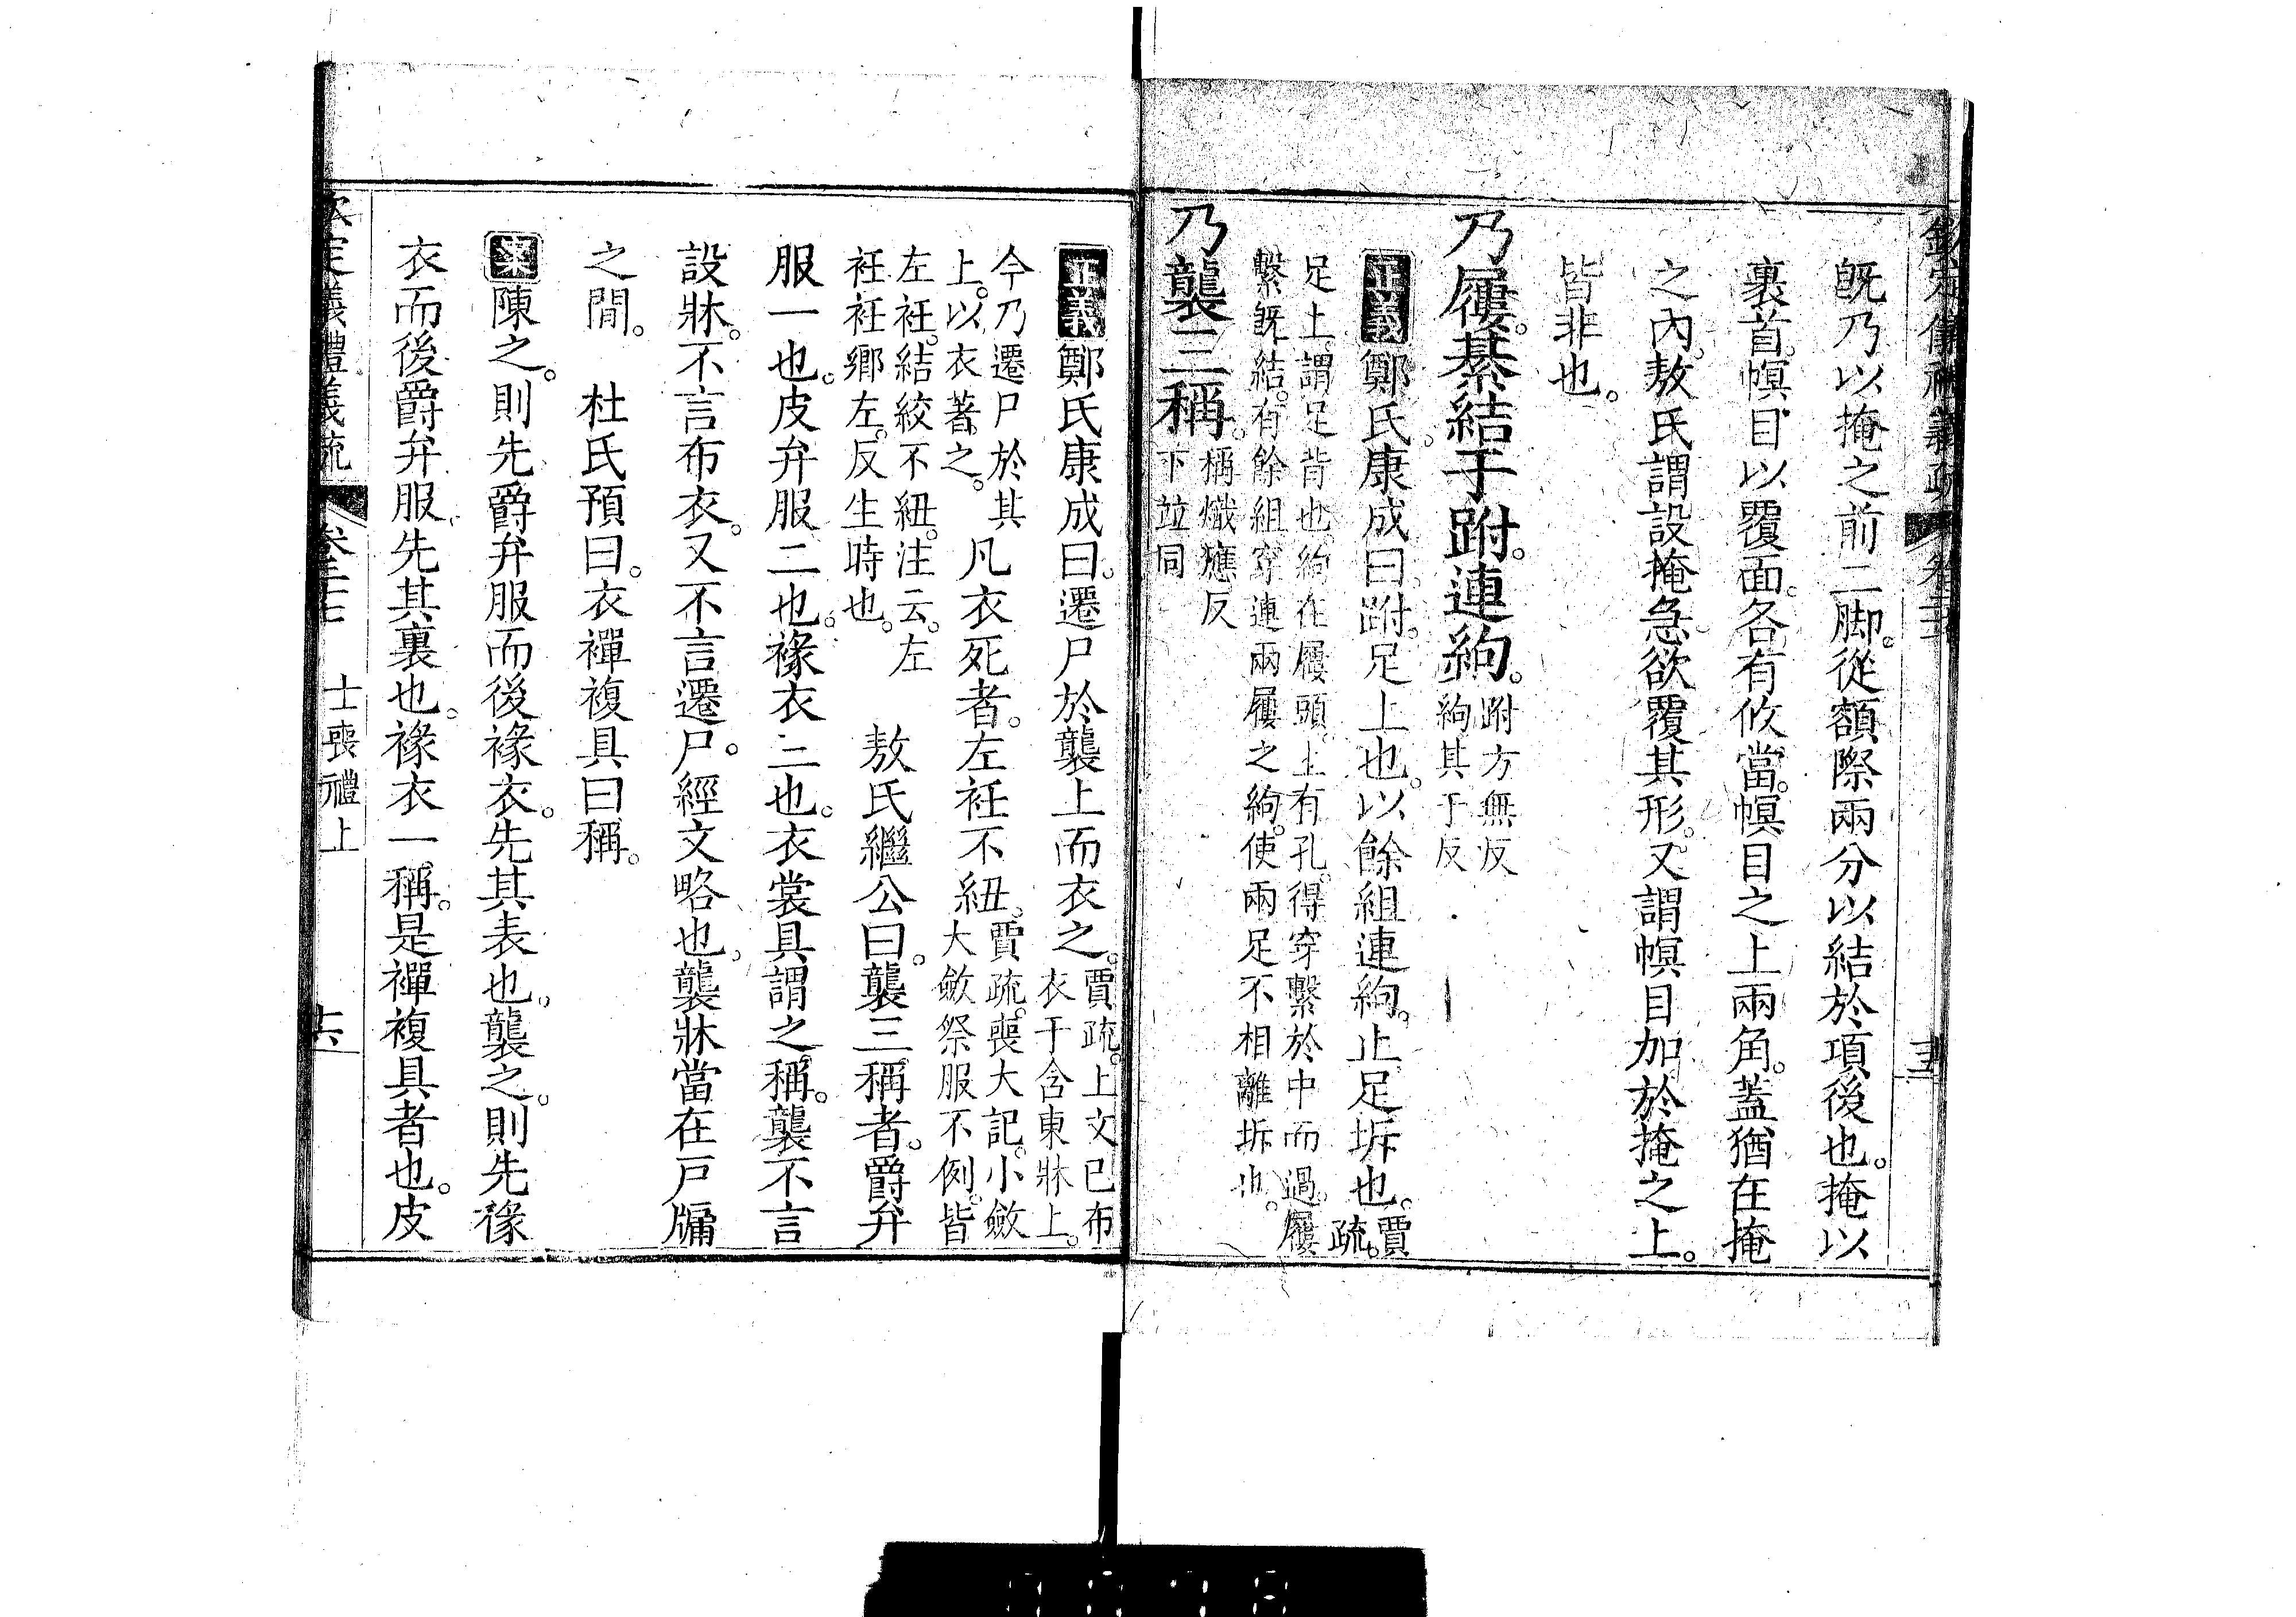 欽定儀禮義疏 卷二十七
既乃以掩之前二脚。從額際兩分以結於項後也。掩以
裹首。幎目以覆面。各有攸當。幎目之上兩角。蓋猶在掩
之內。敖氏謂設掩急欲覆其形。又謂幎目加於掩之上。
皆非也。
乃屨。綦結于跗。連絇。跗方無反
絇其于反
正義鄭氏康成曰。跗。足上也。以餘組連絇。止足坼也。賈疏。
足上。謂足背也。絇在屨頭。上有孔。得穿繫於中而過。屨
繫既結。有餘組穿連兩屨之絇。使兩足不相離坼也。
乃襲三稱。稱熾應反
下竝同
正義鄭氏康成曰。遷尸於襲上而衣之。賈疏。上文已布
衣于含東牀上。
今乃遷尸於其
上。以衣著之。
凡衣死者。左衽不紐。賈疏。喪大記。小斂
大斂祭服不倒。皆
左衽。結絞不紐。注云。左
衽衽鄉左。反生時也。
敖氏繼公曰。襲三稱者。爵弁
服一也。皮弁服二也。褖衣三也。衣裳具謂之稱。襲不言
設牀。不言布衣。又不言遷尸。經文略也。襲牀當在戶牖
之閒。 杜氏預曰。衣襌複具曰稱。
案陳之。則先爵弁服而後褖衣。先其表也。襲之。則先褖
衣而後爵弁服。先其裏也。褖衣一稱。是襌複具者也。皮
欽定儀禮義疏 卷二十七 士喪禮上 十六